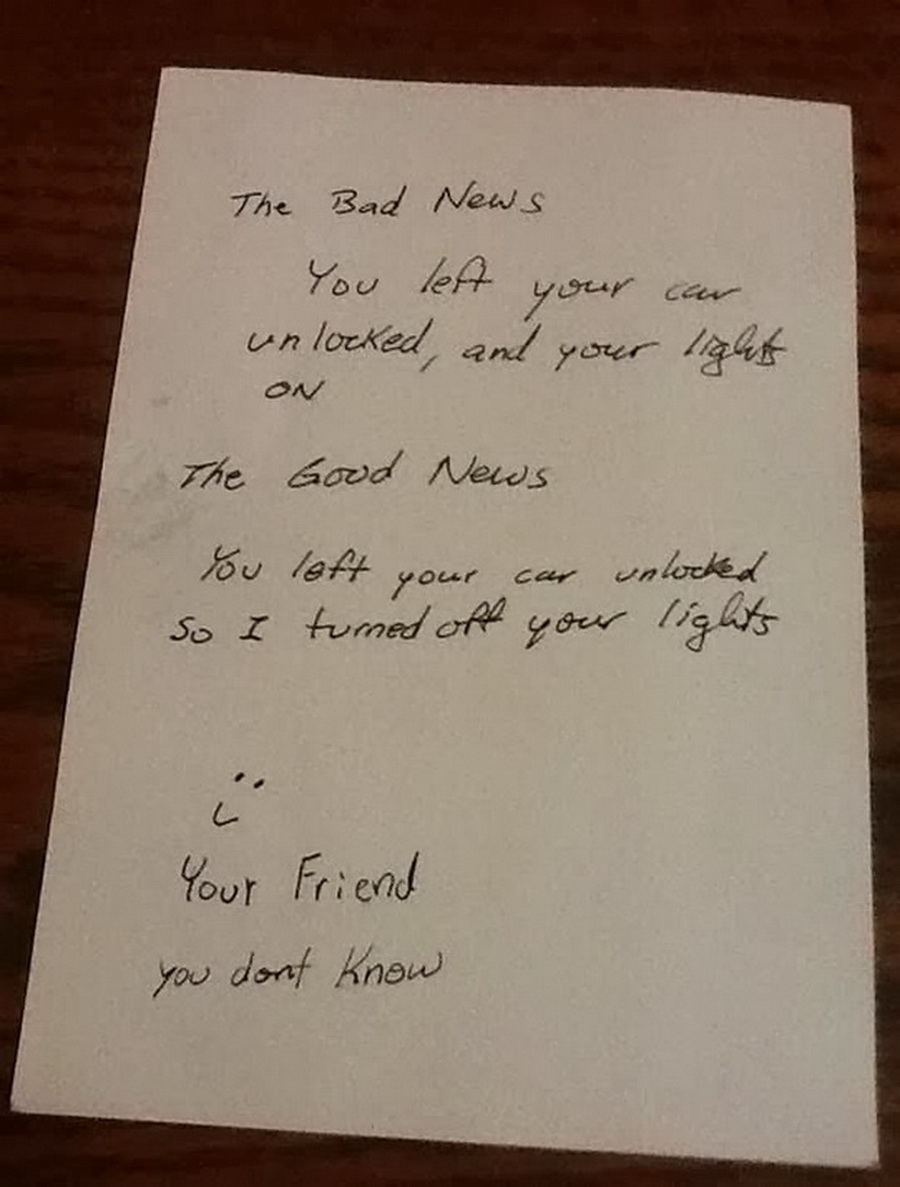 The Bad News
You left your car
unlocked, and your lights
ON
The Good News
You left your car unlocked
So I turned off your lights
Your Friend
you dont Know